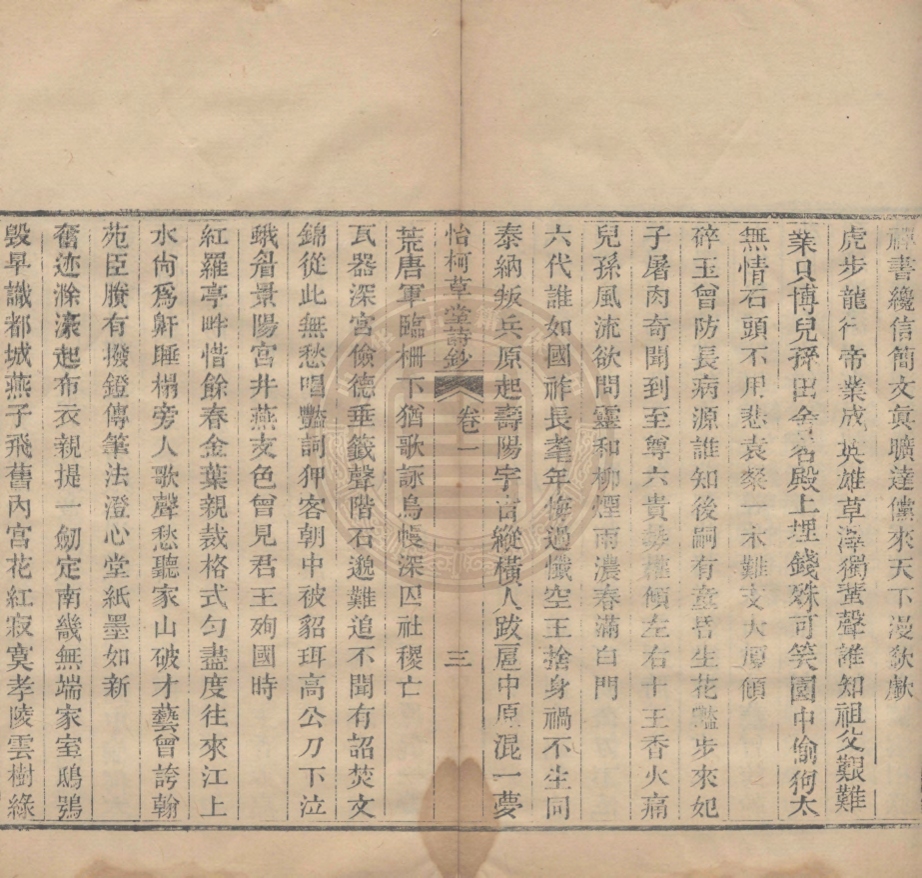 禪書纔信簡文眞曠達儻來天下漫欷歔
虎步龍行帝業成英雄草澤獨蜚聲誰知祖父艱難
業只博兒孫田舍名殿上埋錢殊可笑園中偷狗太
無情石頭不用悲袁粲一木難支大厦傾
碎玉曾防長病源誰知後嗣有童昏生花豔步來妃
子屠肉奇聞到至尊六貴勢權傾左右十王香火痛
兒孫風流欲問靈和柳煙雨濃春滿白門
六代誰如國祚長耄年悔過懺空王捨身禍不生同
泰納叛兵原起壽陽宇宙縱橫人跋扈中原混一夢
怡柯草堂詩鈔 卷一 三
荒唐軍臨柵下猶歌詠烏幔深囚社稷亡
瓦器深宮儉德垂籤聲階石邈難追不聞有詔焚文
錦從此無愁唱豔詞狎客朝中被貂珥高公刀下泣
蛾眉景陽宮井燕支色曾見君王殉國時
紅羅亭畔惜餘春金葉親裁格式勻盡度往來江上
水尙爲鼾睡榻旁人歌聲愁聽家山破才藝曾誇翰
苑臣賸有撥鐙傳筆法澄心堂紙墨如新
奮迹滁濠起布衣親提一劒定南畿無端家室鴟鴞
毀早識都城燕子飛舊內宮花紅寂寞孝陵雲樹綠